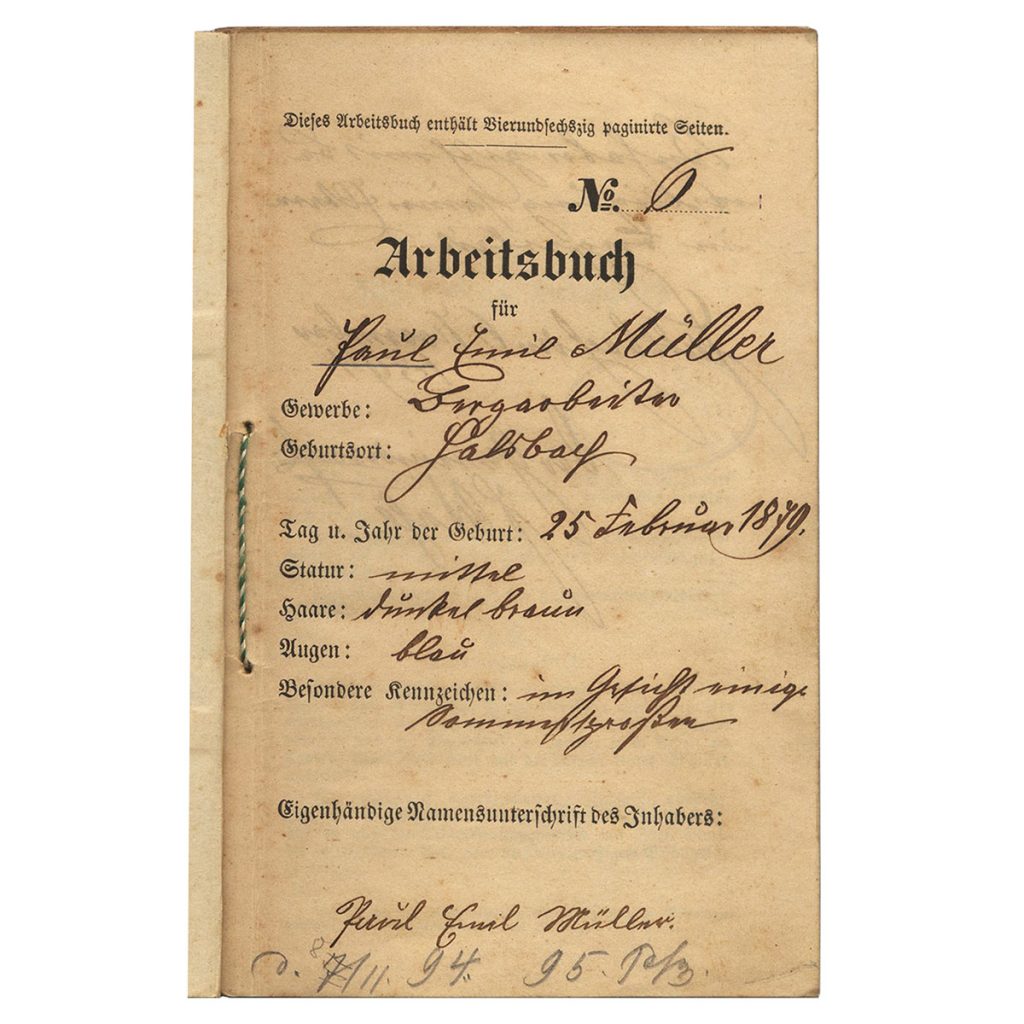 Dieses Arbeitsbuch enthält Vierundsechszig paginirte Seiten.
No. 6
Arbeitsbuch
für
Paul Emil Müller
Gewerbe: Bergarbeiter
Geburtsort: Halsbach
Tag u. Jahr der Geburt: 25 Februar 1879.
Statur: mittel
Haare: dunkelbraun
Augen: blau
Besondere Kennzeichen: im Gesicht einige
Sommersproßen
Eigenhändige Namensunterschrift des Inhabers:
Paul Emil Müller.
d. /11. 94. 95.